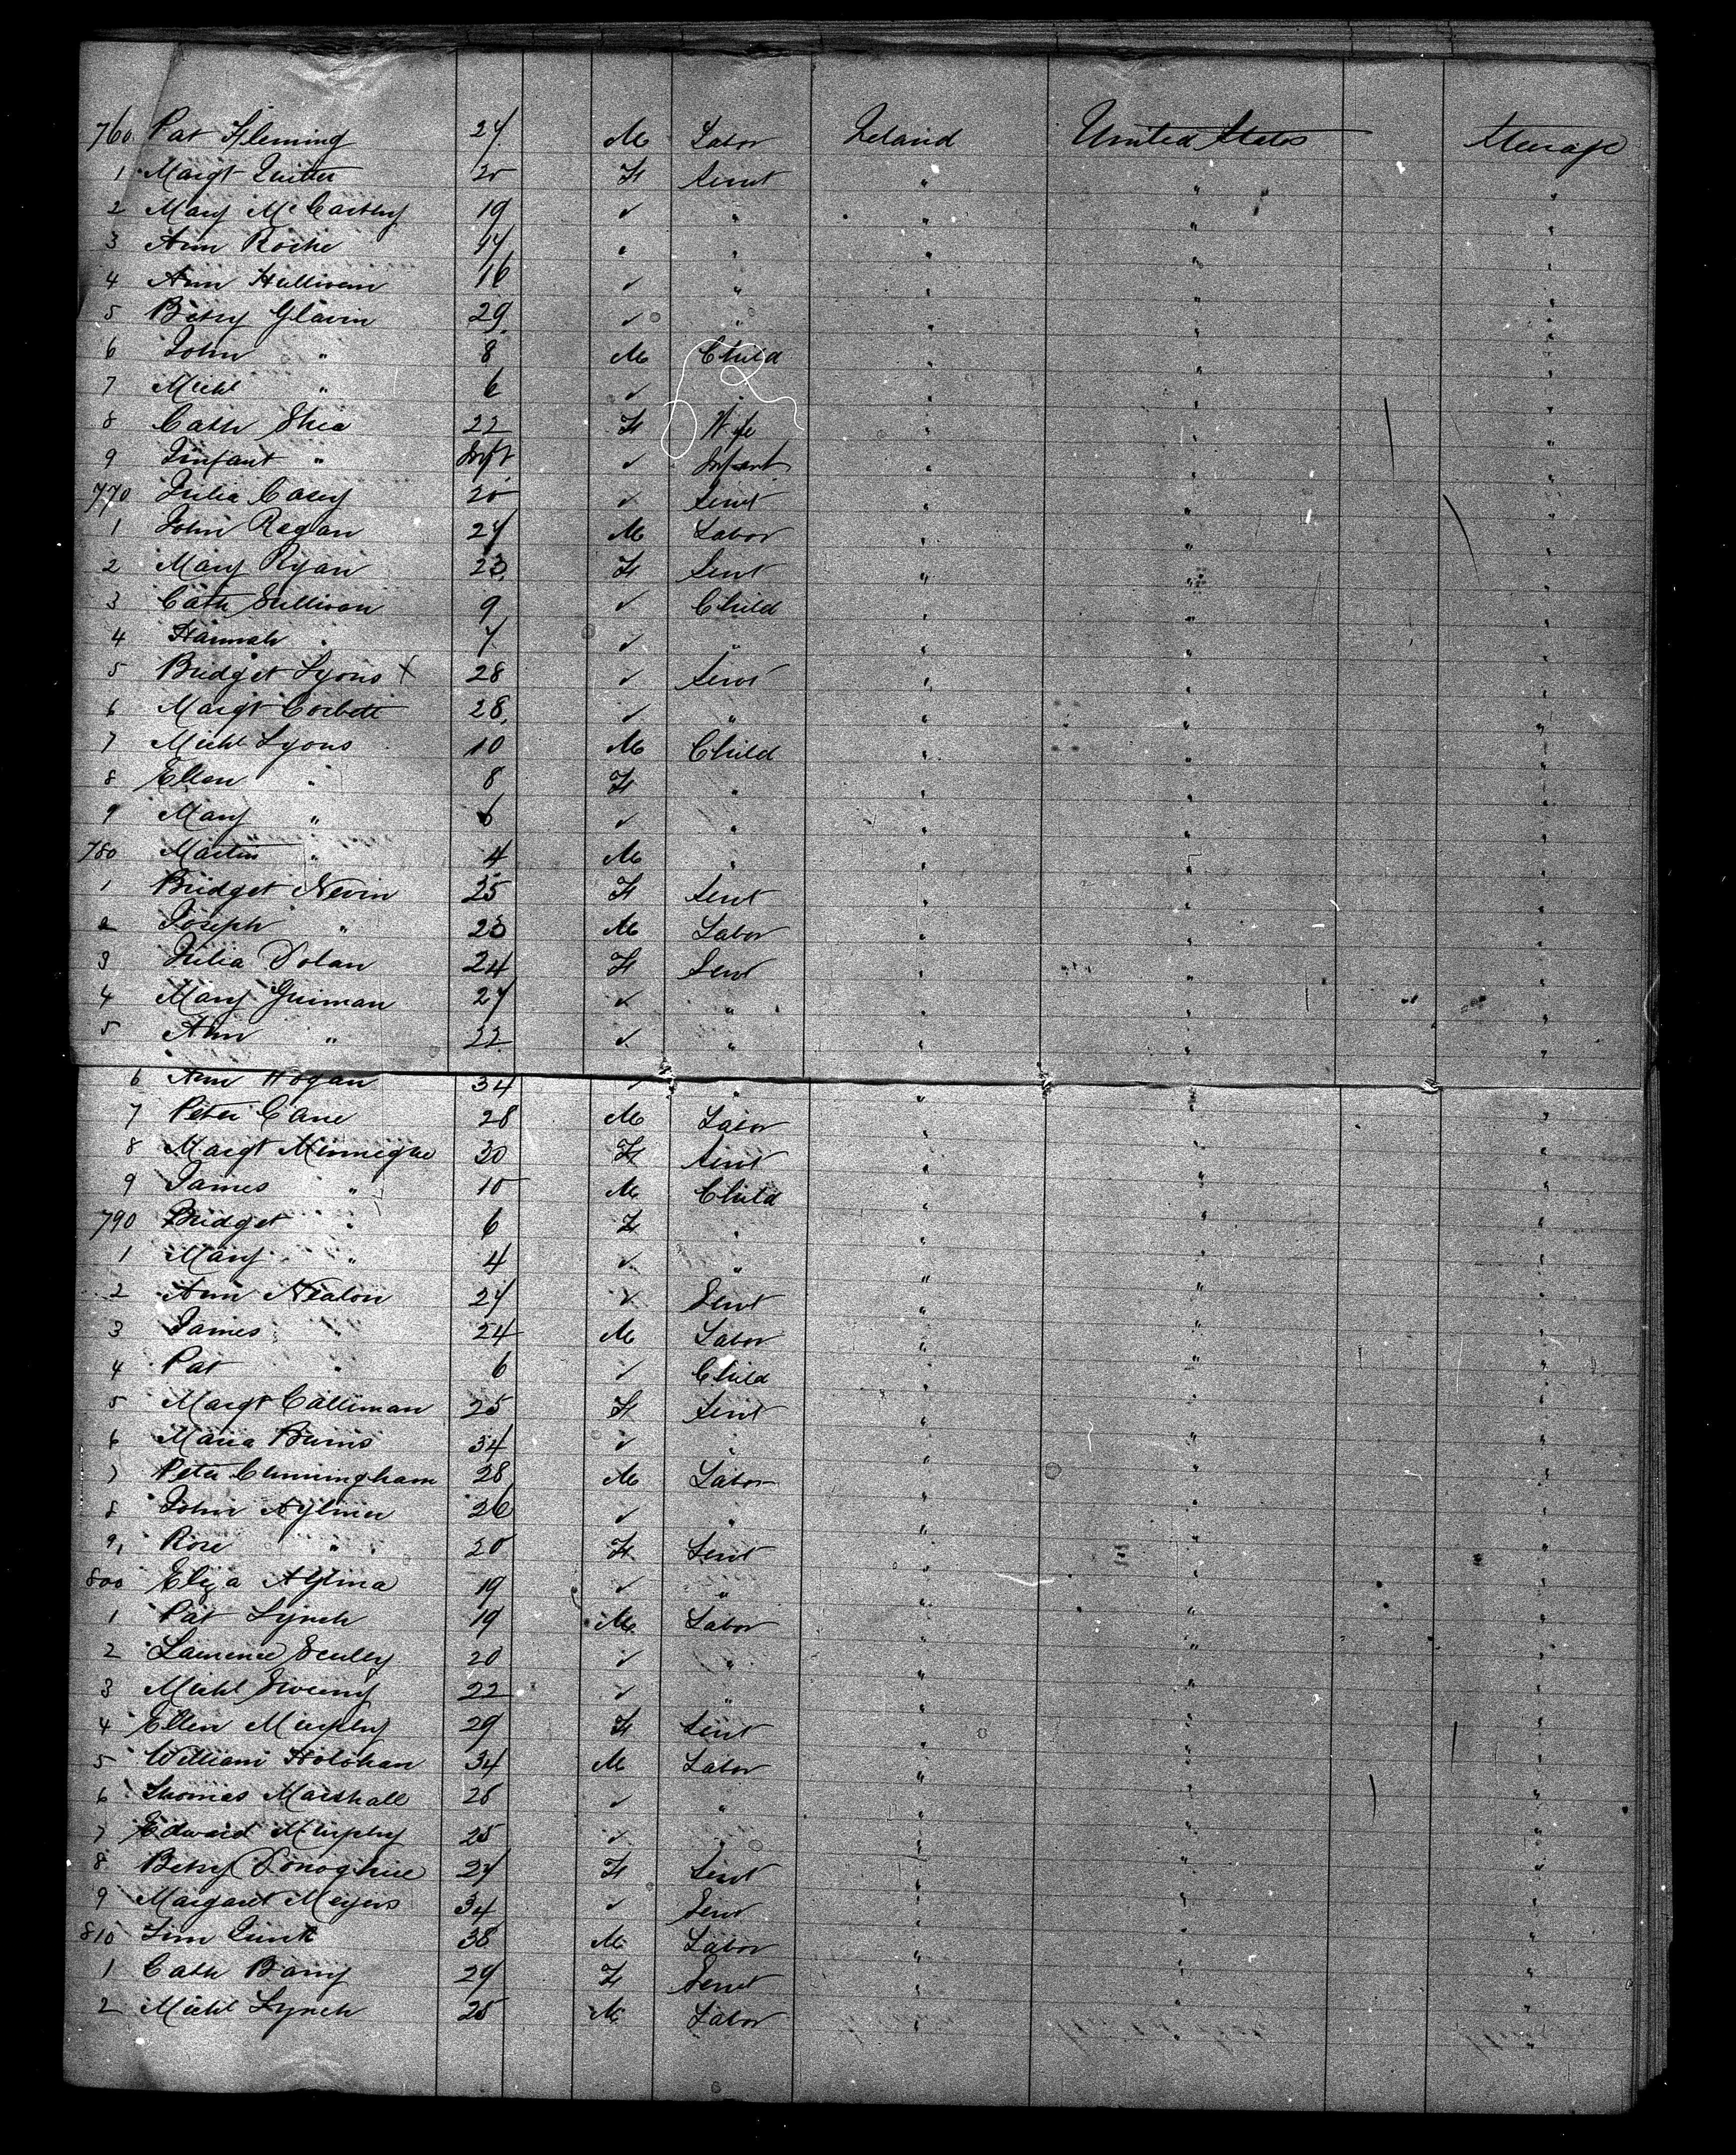 760 Pat Fleming 27 M Labor Ireland United States Steerage
1 Margt Quitter 20 F Servt " " "
2 Mary McCarthy 19 ✓ " " " "
3 Ann Roche 17 " " " " "
4 Ann Hullivan 16 ✓ " " " "
5 Betsy Glavin 29 ✓ " " " "
6 John " 8 M Child " " "
7 Michl " 6 ✓ " " " "
8 Cath Shea 22 F Wife " " "
9 Infant " Inft ✓ Infant " " "
770 Julia Casey 20 ✓ Servt " " "
1 John Regan 27 M Labor " " "
2 Mary Ryan 23 F Servt " " "
3 Cath Sullivan 9 ✓ Child " " "
4 Hannah " 7 ✓ " " " "
5 Bridget Lyons X 28 ✓ Servt " " "
6 Margt Corbett 28 ✓ " " " "
7 Michl Lyons 10 M Child " " "
8 Ellen " 8 F " " " "
9 Mary " 6 ✓ " " " "
780 Martin " 4 M " " " "
1 Bridget Nevin 25 F Servt " " "
2 Joseph " 23 M Labor " " "
3 Julia Dolan 24 F Servt " " "
4 Mary Guinan 27 ✓ " " " "
5 Ann " 22 ✓ " " " "
6 Ann Hogan 34 ✓ " " " "
7 Peter Cane 28 M Labor " " "
8 Margt Minnegue 30 F Servt " " "
9 James " 10 M Child " " "
790 Bridget " 6 F " " " "
1 Mary " 4 ✓ " " " "
2 Ann Nealon 27 ✓ Servt " " "
3 James " 24 M Labor " " "
4 Pat " 6 ✓ Child " " "
5 Margt Callinan 25 F Servt " " "
6 Maria Burns 34 ✓ " " " "
7 Peter Cunningham 28 M Labor " " "
8 John Aylmer 26 ✓ " " " "
9 Rose " 20 F Servt " " "
800 Eliza Aylmer 19 ✓ " " " "
1 Pat Lynch 19 M Labor " " "
2 Laurence Scully 20 ✓ " " " "
3 Michl Sweeny 22 ✓ " " " "
4 Ellen Murphy 29 F Servt " " "
5 William Holohan 34 M Labor " " "
6 Thomas Marshall 28 ✓ " " " "
7 Edward Murphy 25 ✓ " " " "
8 Betsy Donoghue 27 F Servt " " "
9 Margaret Meyers 34 ✓ Servt " " "
810 Tim 38 M Labor " " "
1 Cath Barry 29 F Servt " " "
2 Michl Lynch 25 M Labor " " "